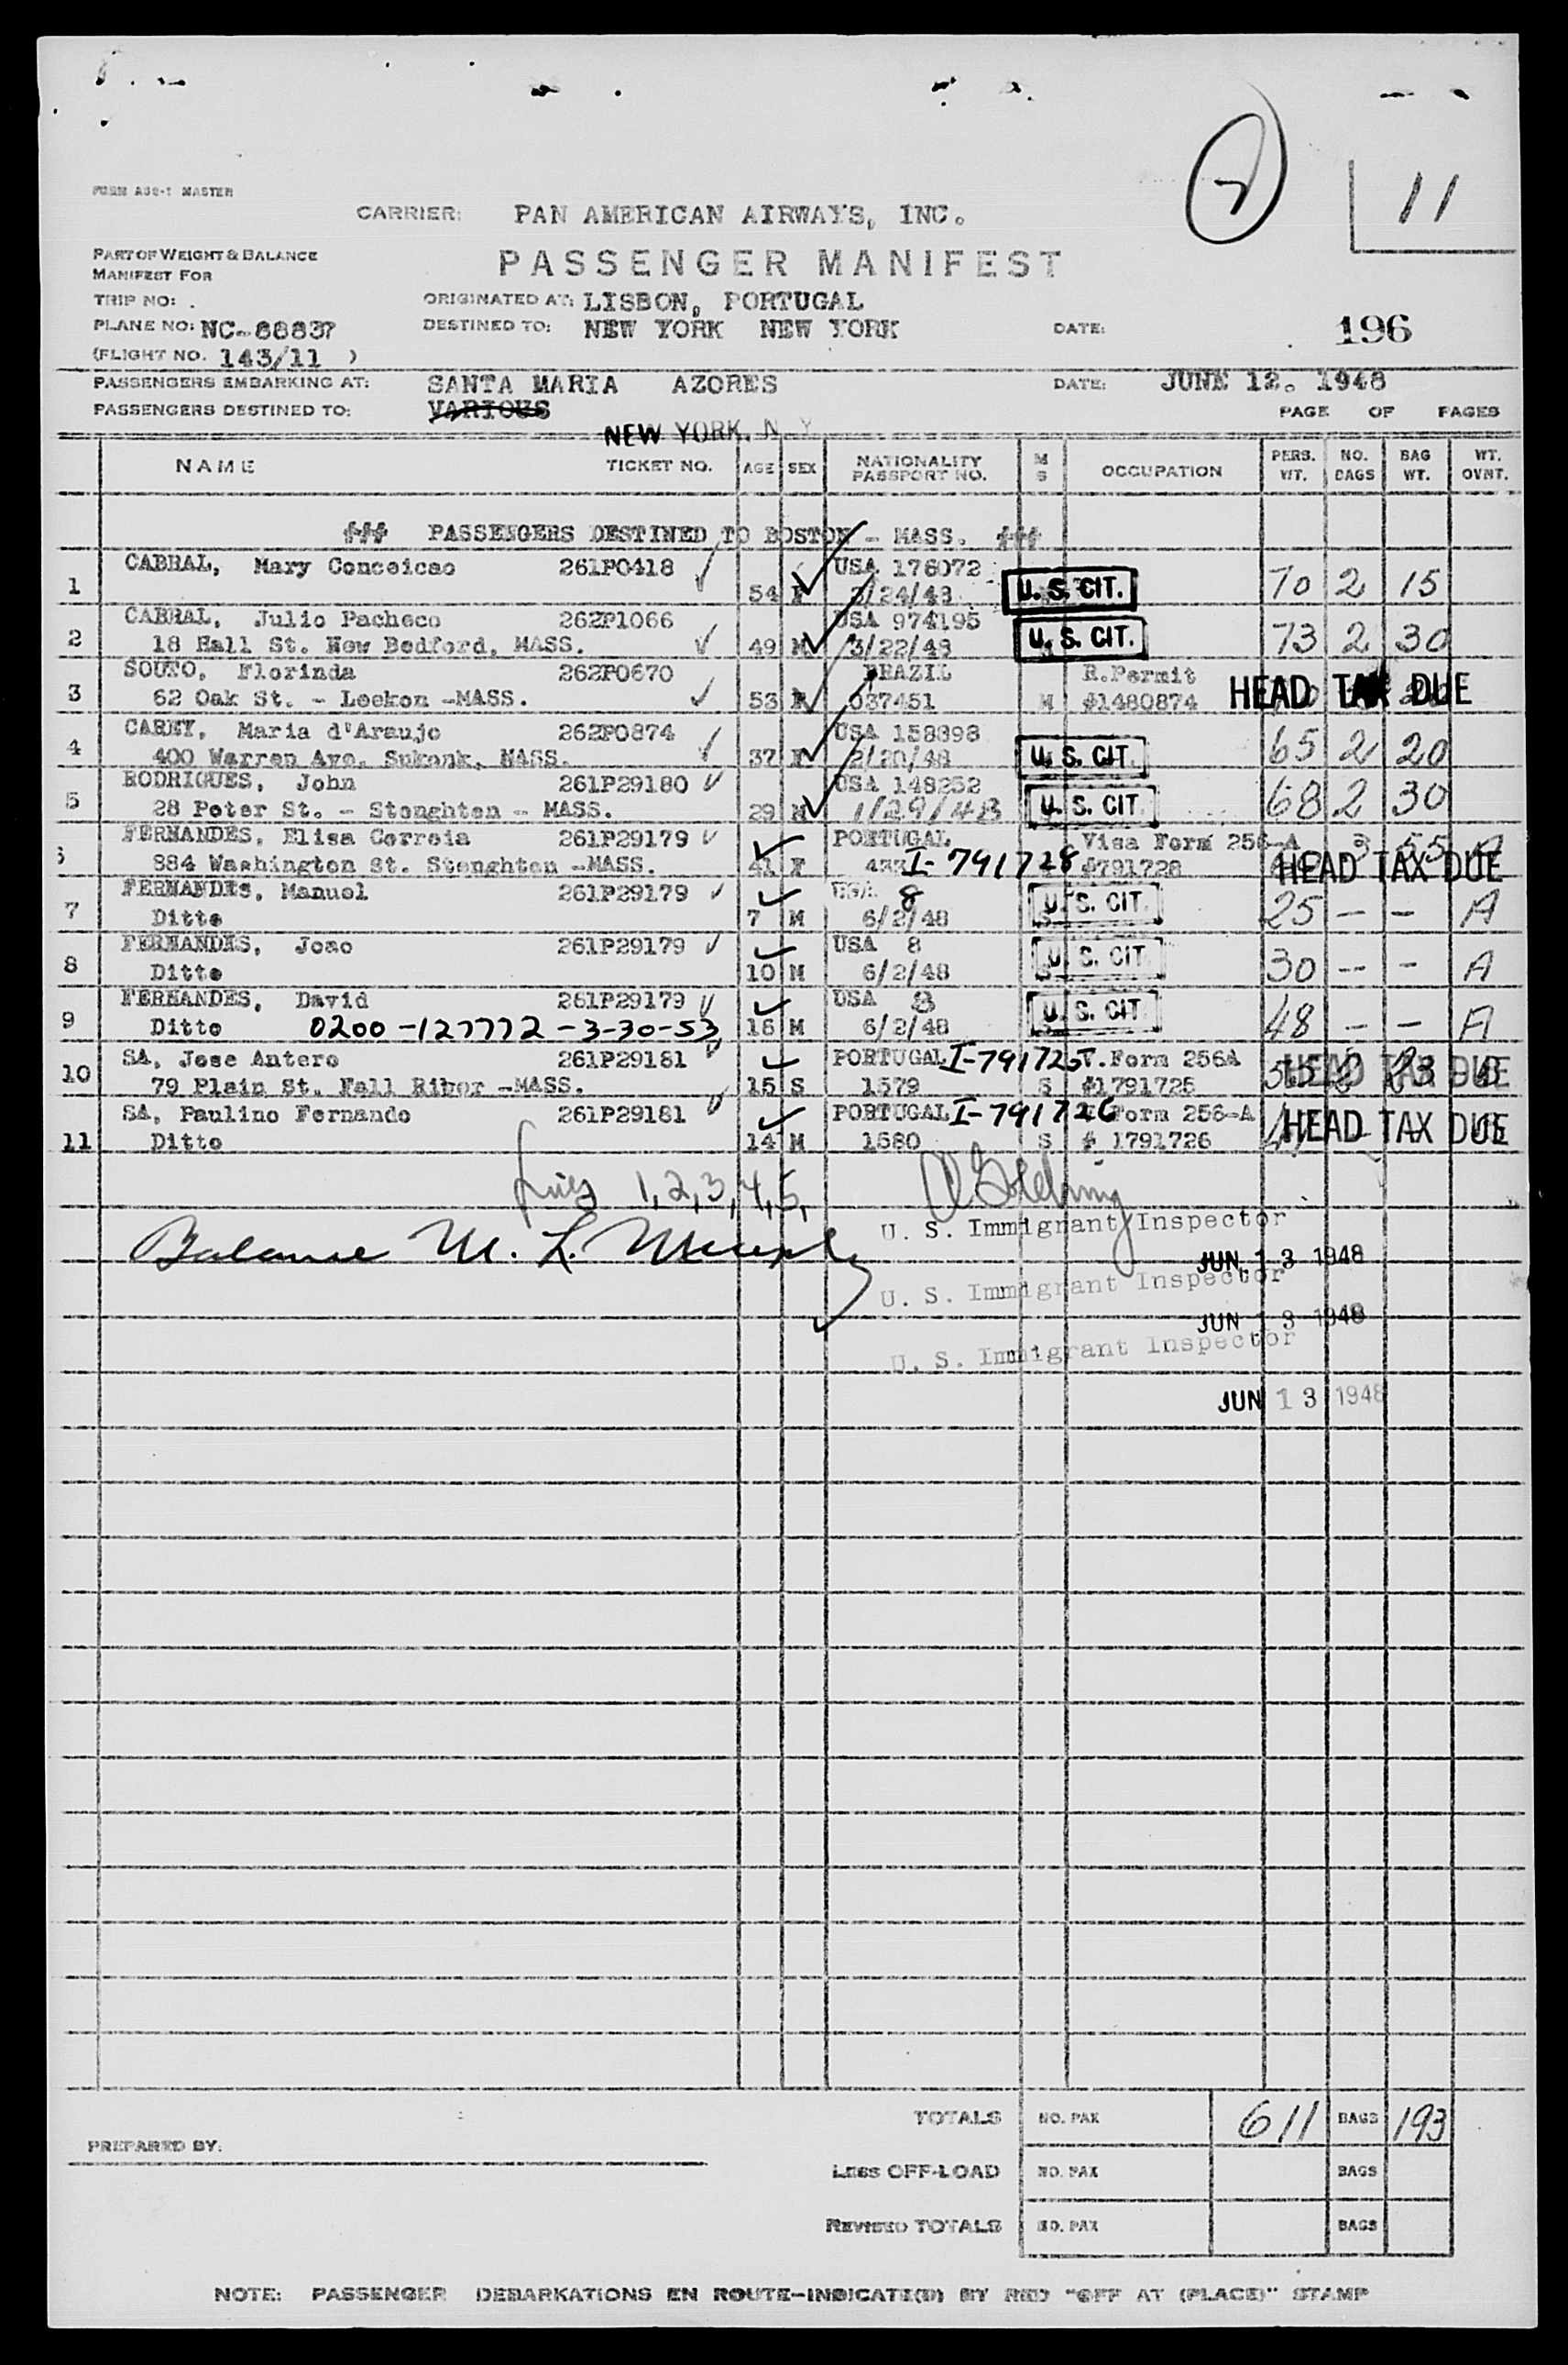 11
FORM A38-1 MASTER
CARRIER: PAN AMERICAN AIRWAYS, INC.
PART OF WEIGHT & BALANCE
PASSENGER MANIFEST
MANIFEST FOR
TRIP NO: .
ORIGINATED AT: LISBON, PORTUGAL
PLANE NO: NC-88837
DESTINED TO: NEW YORK NEW YORK
DATE: 196
(FLIGHT NO. 143/11 )
PASSENGERS EMBARKING AT: SANTA MARIA AZORES
DATE: JUNE 12. 1948
PASSENGERS DESTINED TO: VARIOUS
PAGE OF PAGES
NEW YORK, N Y
NAME TICKET NO. AGE SEX NATIONALITY PASSPORT NO. M S OCCUPATION PERS. WT. NO. BAGS BAG WT. WT. OVNT.
### PASSENGERS DESTINED TO BOSTON - MASS. ###
CABRAL, Mary Conceicao 261P0418 USA 176072
1 54 F 3/24/48 U. S. CIT. 70 2 15
CABRAL, Julio Pacheco 262P1066 USA 974195
2 18 Hall St. New Bedford, MASS. 49 M 3/22/48 U. S. CIT. 73 2 30
SOUTO, Florinda 262P0670 BRAZIL R.Permit
3 62 Oak St. - Leekon -MASS. 53 F 037451 M #1480874 HEAD TAX DUE
CARNY, Maria d'Araujo 262P0874 USA 158898
4 400 Warren Ave. Sukonk, MASS. 37 F 2/20/48 U. S. CIT. 65 2 20
RODRIGUES, John 261P29180 USA 148252
5 28 Peter St. - Stonghten - MASS. 29 M 1/29/48 U. S. CIT. 68 2 30
FERNANDES, Elisa Correia 261P29179 PORTUGAL Visa Form 256-A 3 55 A
884 Washington St. Stonghten -MASS. 41 F I-791728 #791728 HEAD TAX DUE
FERNANDES, Manuel 261P29179 USA 8
7 Ditto 7 M 6/2/48 U. S. CIT. 25 - - A
FERNANDES, Joao 261P29179 USA 8
8 Ditto 10 M 6/2/48 U. S. CIT. 30 -- - A
FERNANDES, David 261P29179 USA 8
9 Ditto 0200-127772-3-30-53 16 M 6/2/48 U. S. CIT. 48 - - A
SA, Jose Antero 261P29181 PORTUGAL I-791725 V.Form 256A
10 79 Plain St. Fall Ribor -MASS. 15 S 1579 S #1791725 HEAD TAX DUE
SA, Paulino Fernando 261P29181 PORTUGAL I-791726 Form 256-A
11 Ditto 14 M 1580 S # 1791726 HEAD TAX DUE
Lines 1,2,3,4,5,
U. S. Immigrant Inspector
Balance M. L. Murphy
JUN 13 1948
U. S. Immigrant Inspector
JUN 13 1948
U. S. Immigrant Inspector
JUN 13 1948
TOTALS NO. PAX 611 BAGS 193
PREPARED BY:
LESS OFF-LOAD NO. PAX BAGS
REVISED TOTALS NO. PAX BAGS
NOTE: PASSENGER DEBARKATIONS EN ROUTE-INDICATE(D) BY RED "OFF AT (PLACE)" STAMP